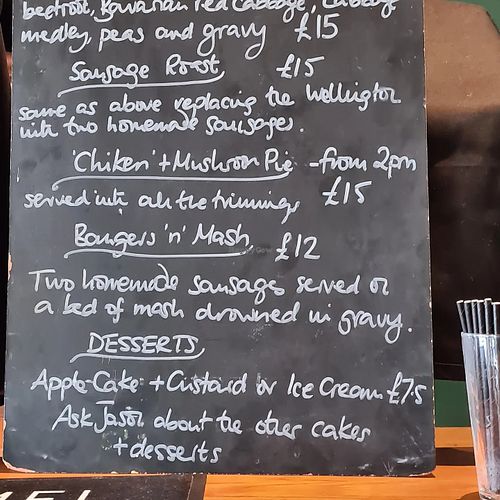 beetroot, Bavarian red cabbage, cabbage
medley, peas and gravy £15
Sausage Roast £15
same as above replacing the Wellington
with two homemade sausages.
'Chiken' + Mushroom Pie - from 2pm
served with all the trimmings £15
Bangers 'n' Mash £12
Two homemade sausages served on
a bed of mash drowned in gravy.
DESSERTS
Apple Cake + Custard or Ice Cream £7.5
Ask Jason about the other cakes
+ desserts